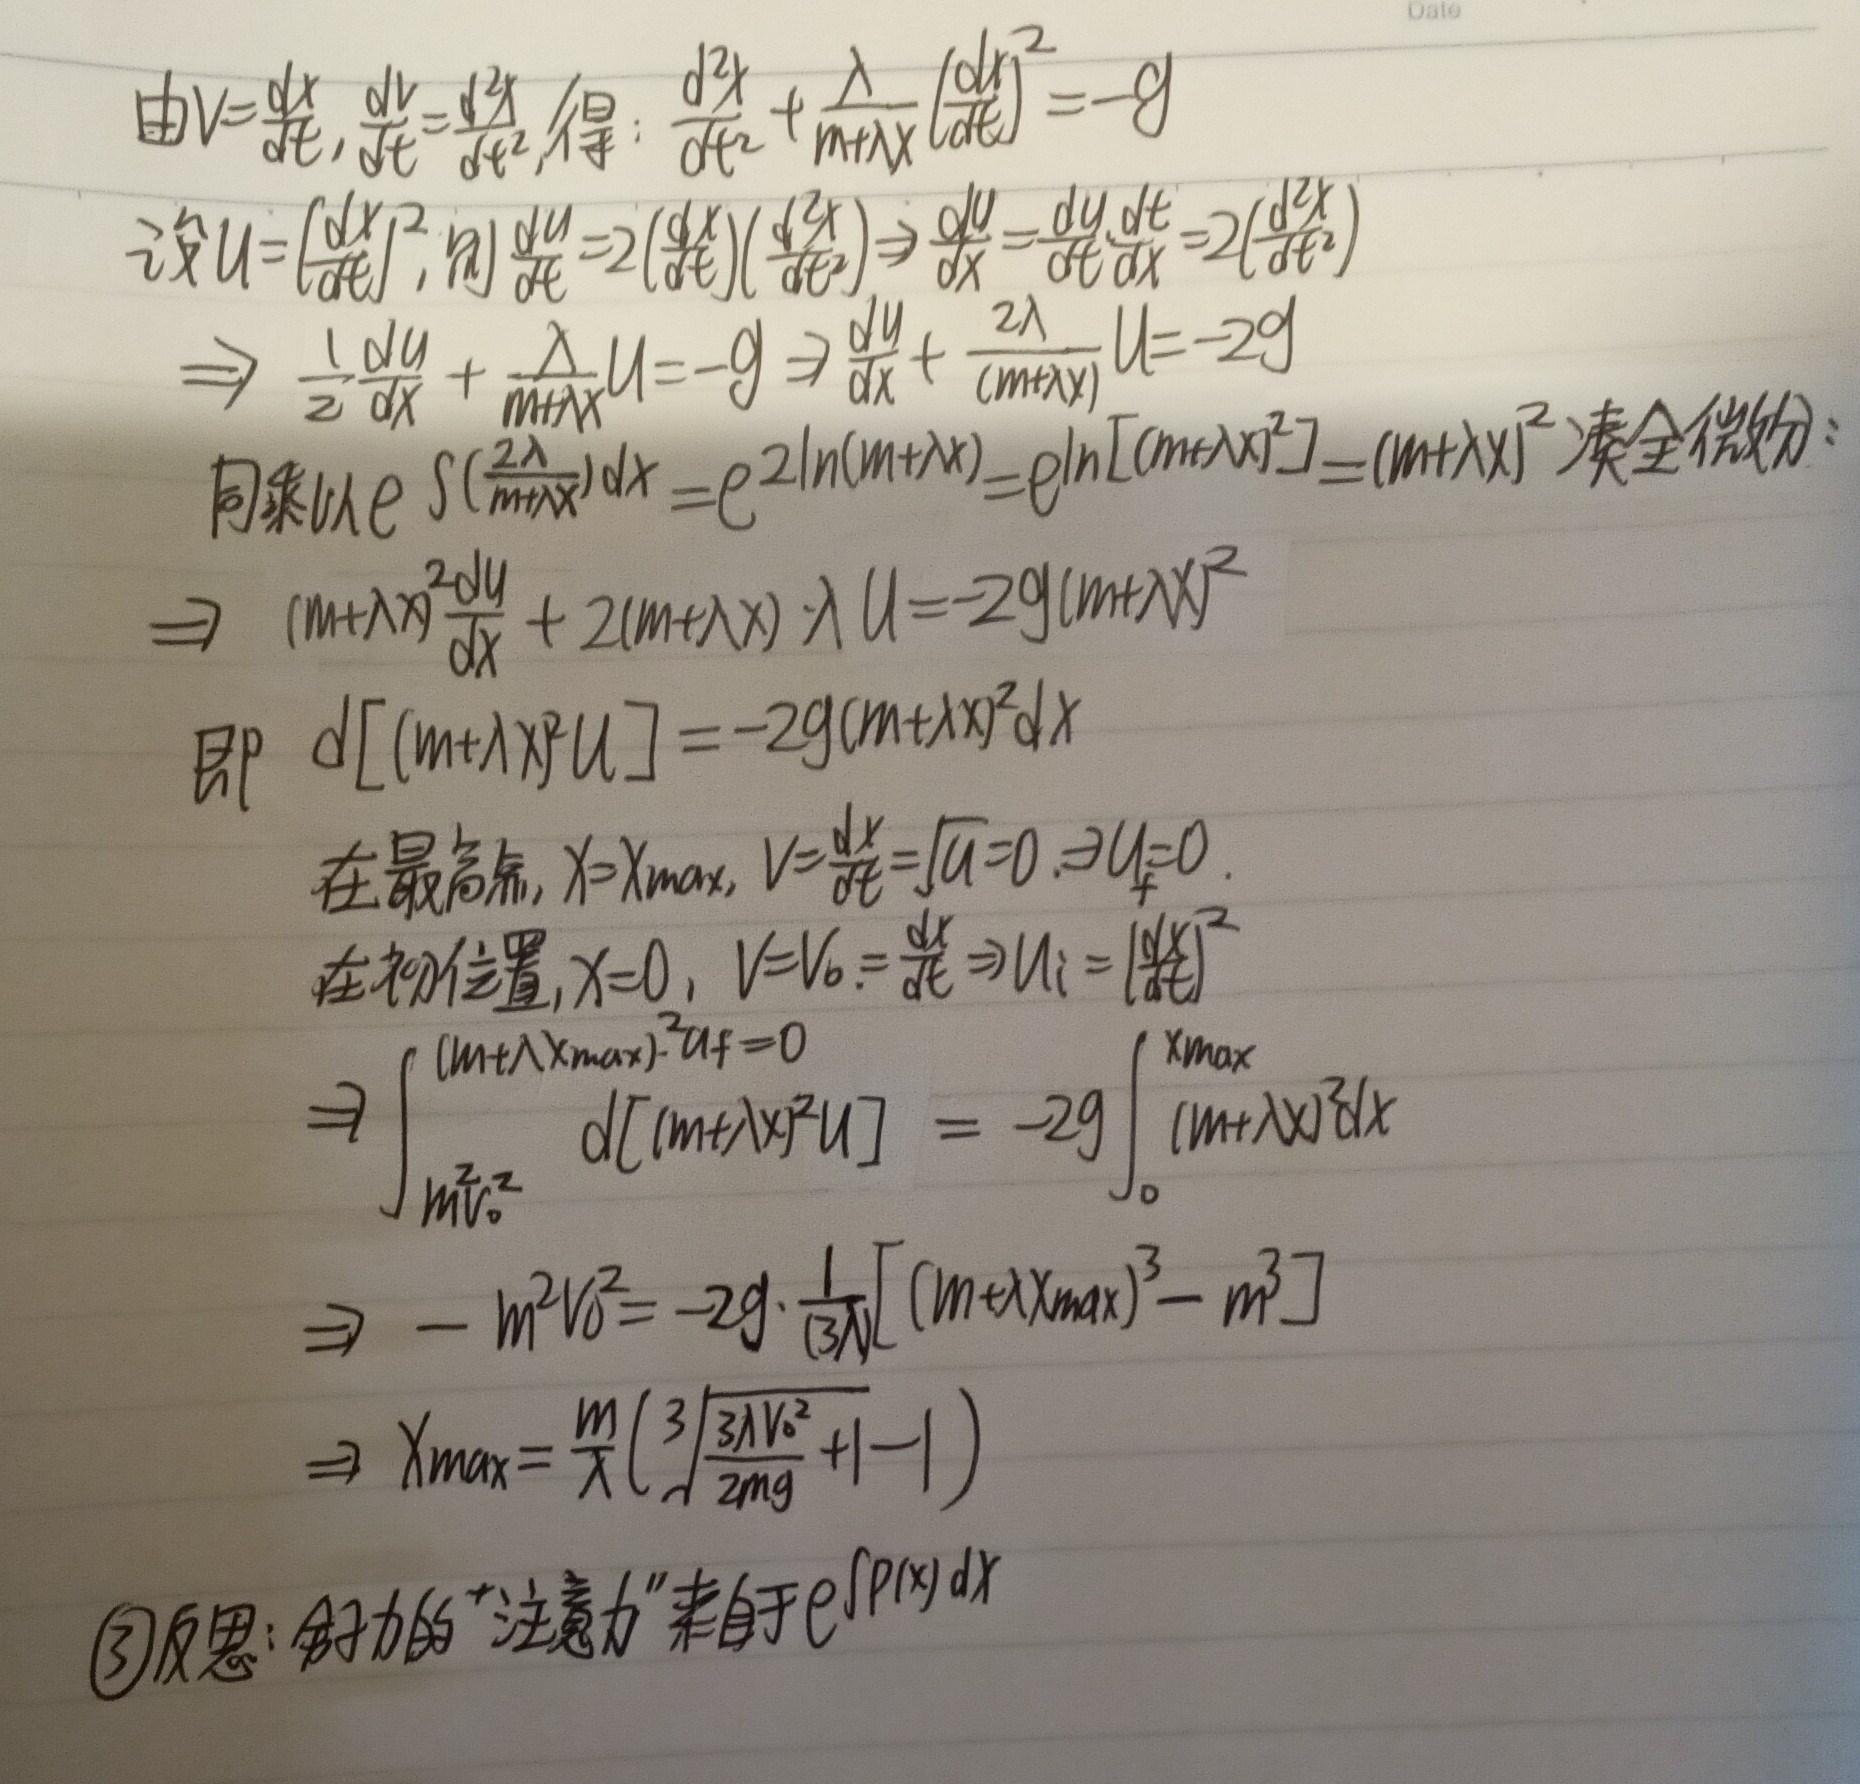 Date
由V=dx/dt, dv/dt=d²x/dt², 得: d²x/dt² + λ/(m+λx) (dx/dt)² = -g
设U=(dx/dt)², 则 du/dt=2(dx/dt)(d²x/dt²) ⇒ du/dx = du/dt·dt/dx = 2(d²x/dt²)
⇒ 1/2 du/dx + λ/(m+λx) U = -g ⇒ du/dx + 2λ/(m+λx) U = -2g
同乘以e^∫(2λ/(m+λx))dx = e^2ln(m+λx) = e^ln[(m+λx)²] = (m+λx)² 凑全微分:
⇒ (m+λx)² du/dx + 2(m+λx)·λ U = -2g(m+λx)²
即 d[(m+λx)²U] = -2g(m+λx)²dx
在最高点, X=Xmax, V=dx/dt=√u=0. ⇒ U_f=0.
在初位置, X=0, V=V₀=dx/dt ⇒ Ui=(dx/dt)²
⇒ ∫_{m²v₀²}^{(m+λXmax)·²u_f=0} d[(m+λx)²U] = -2g ∫_0^{Xmax} (m+λx)²dx
⇒ -m²V₀² = -2g·1/(3λ)[(m+λXmax)³ - m³]
⇒ Xmax = m/λ(³√(3λV₀²/2mg + 1) - 1)
③反思: 的“注意力”来自于e^∫P(x)dx